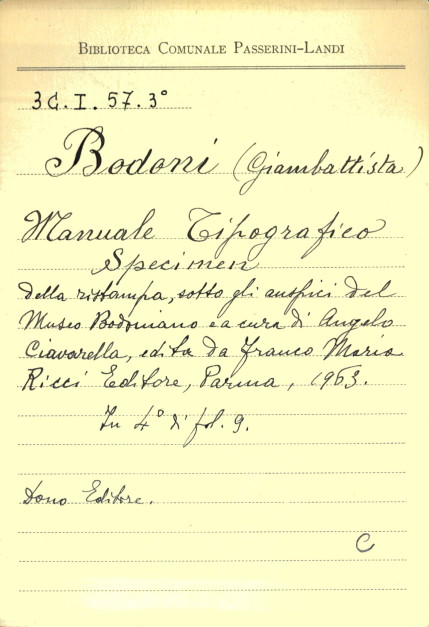 BIBLIOTECA COMUNALE PASSERINI-LANDI
3G.I.57.3°
Bodoni (Giambattista)
Manuale Tipografico
Specimen
della ristampa, sotto gli auspici del
Museo Bodoniano e a cura di Angelo
Ciavarella, edita da Franco Maria
Ricci Editore, Parma, 1963.
In 4° di fol. 9.
Dono Editore.
C